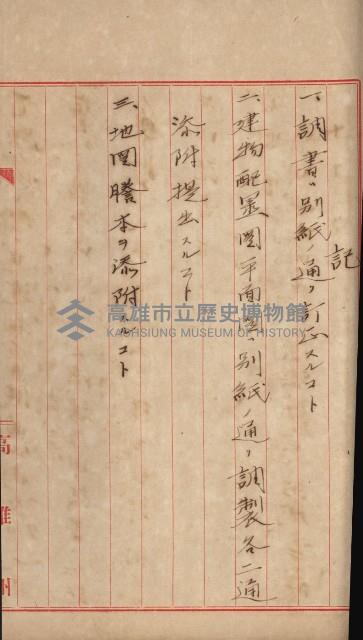 記
一、調書ハ別紙ノ通リ訂正スルコト
二、建物配置図平面図ハ別紙ノ通リ調製各二通
添附提出スルコト
三、地図謄本ヲ添附スルコト
高雄州
高雄市立歷史博物館
KAOHSIUNG MUSEUM OF HISTORY